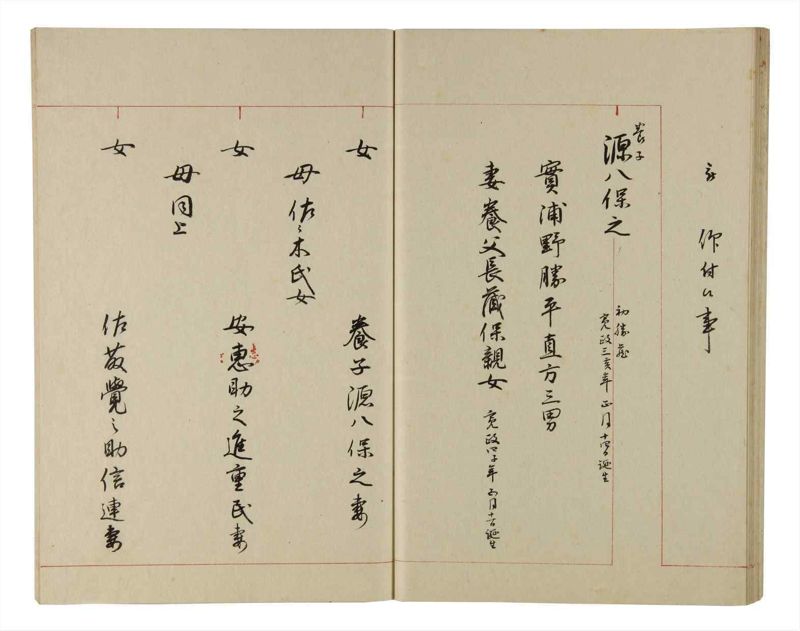 被 仰付候事
養子
源八保之
初勝蔵
寛政三亥年正月十四日誕生
實浦野勝平直方三男
妻養父長蔵保親女 寛政四子年
誕生
女 養子源八保之妻
母佐々木氏女
女 安惠助之進重民妻
母同上
女 佐藤覺之助信連妻